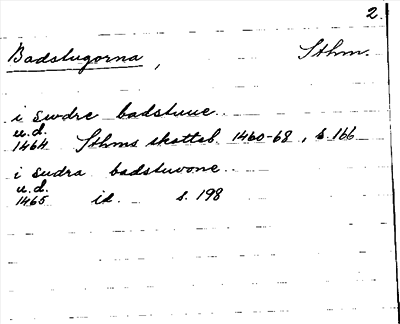 2.
Badstugorna, Sthm.
i swdre badstuue..
u.d.
1464 Sthms skotteb 1460-68, s. 166
i sudra badstuvone..
u.d.
1465 ib. s. 198